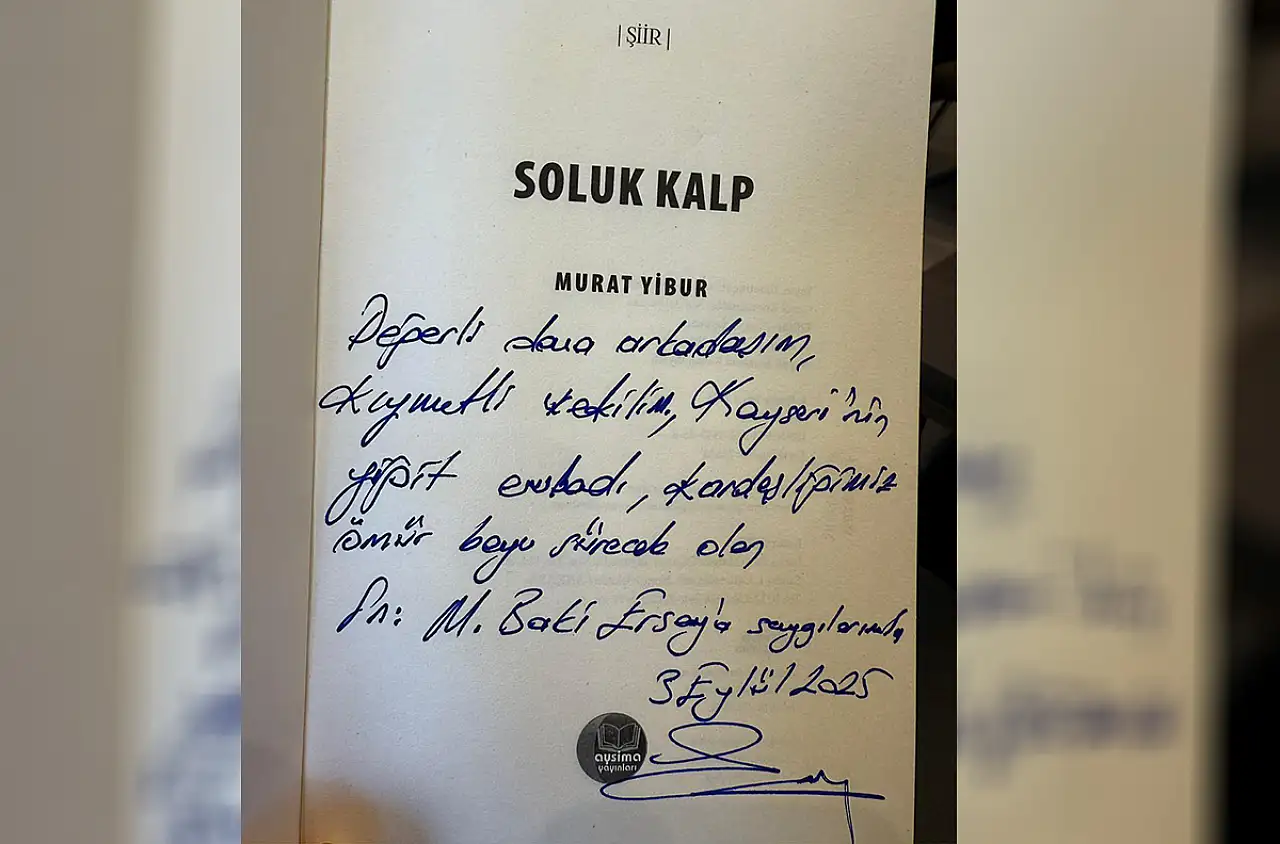 | ŞİİR |
SOLUK KALP
MURAT YİBUR
Değerli dava arkadaşım,
Kıymetli vekilim, Kayseri'nin
yiğit evladı, kardeşliğimiz
ömür boyu sürecek olan
Sn: M. Baki Ersoy'a saygılarımla
3 Eylül 2025
aysima
yayınları